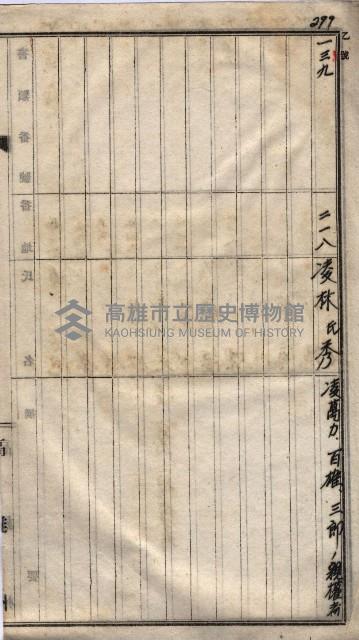 299
乙號
一三九
二一八
凌林氏秀
凌萬力、百雄、三郎ノ親權者
高雄市立歷史博物館
KAOHSIUNG MUSEUM OF HISTORY
高雄州